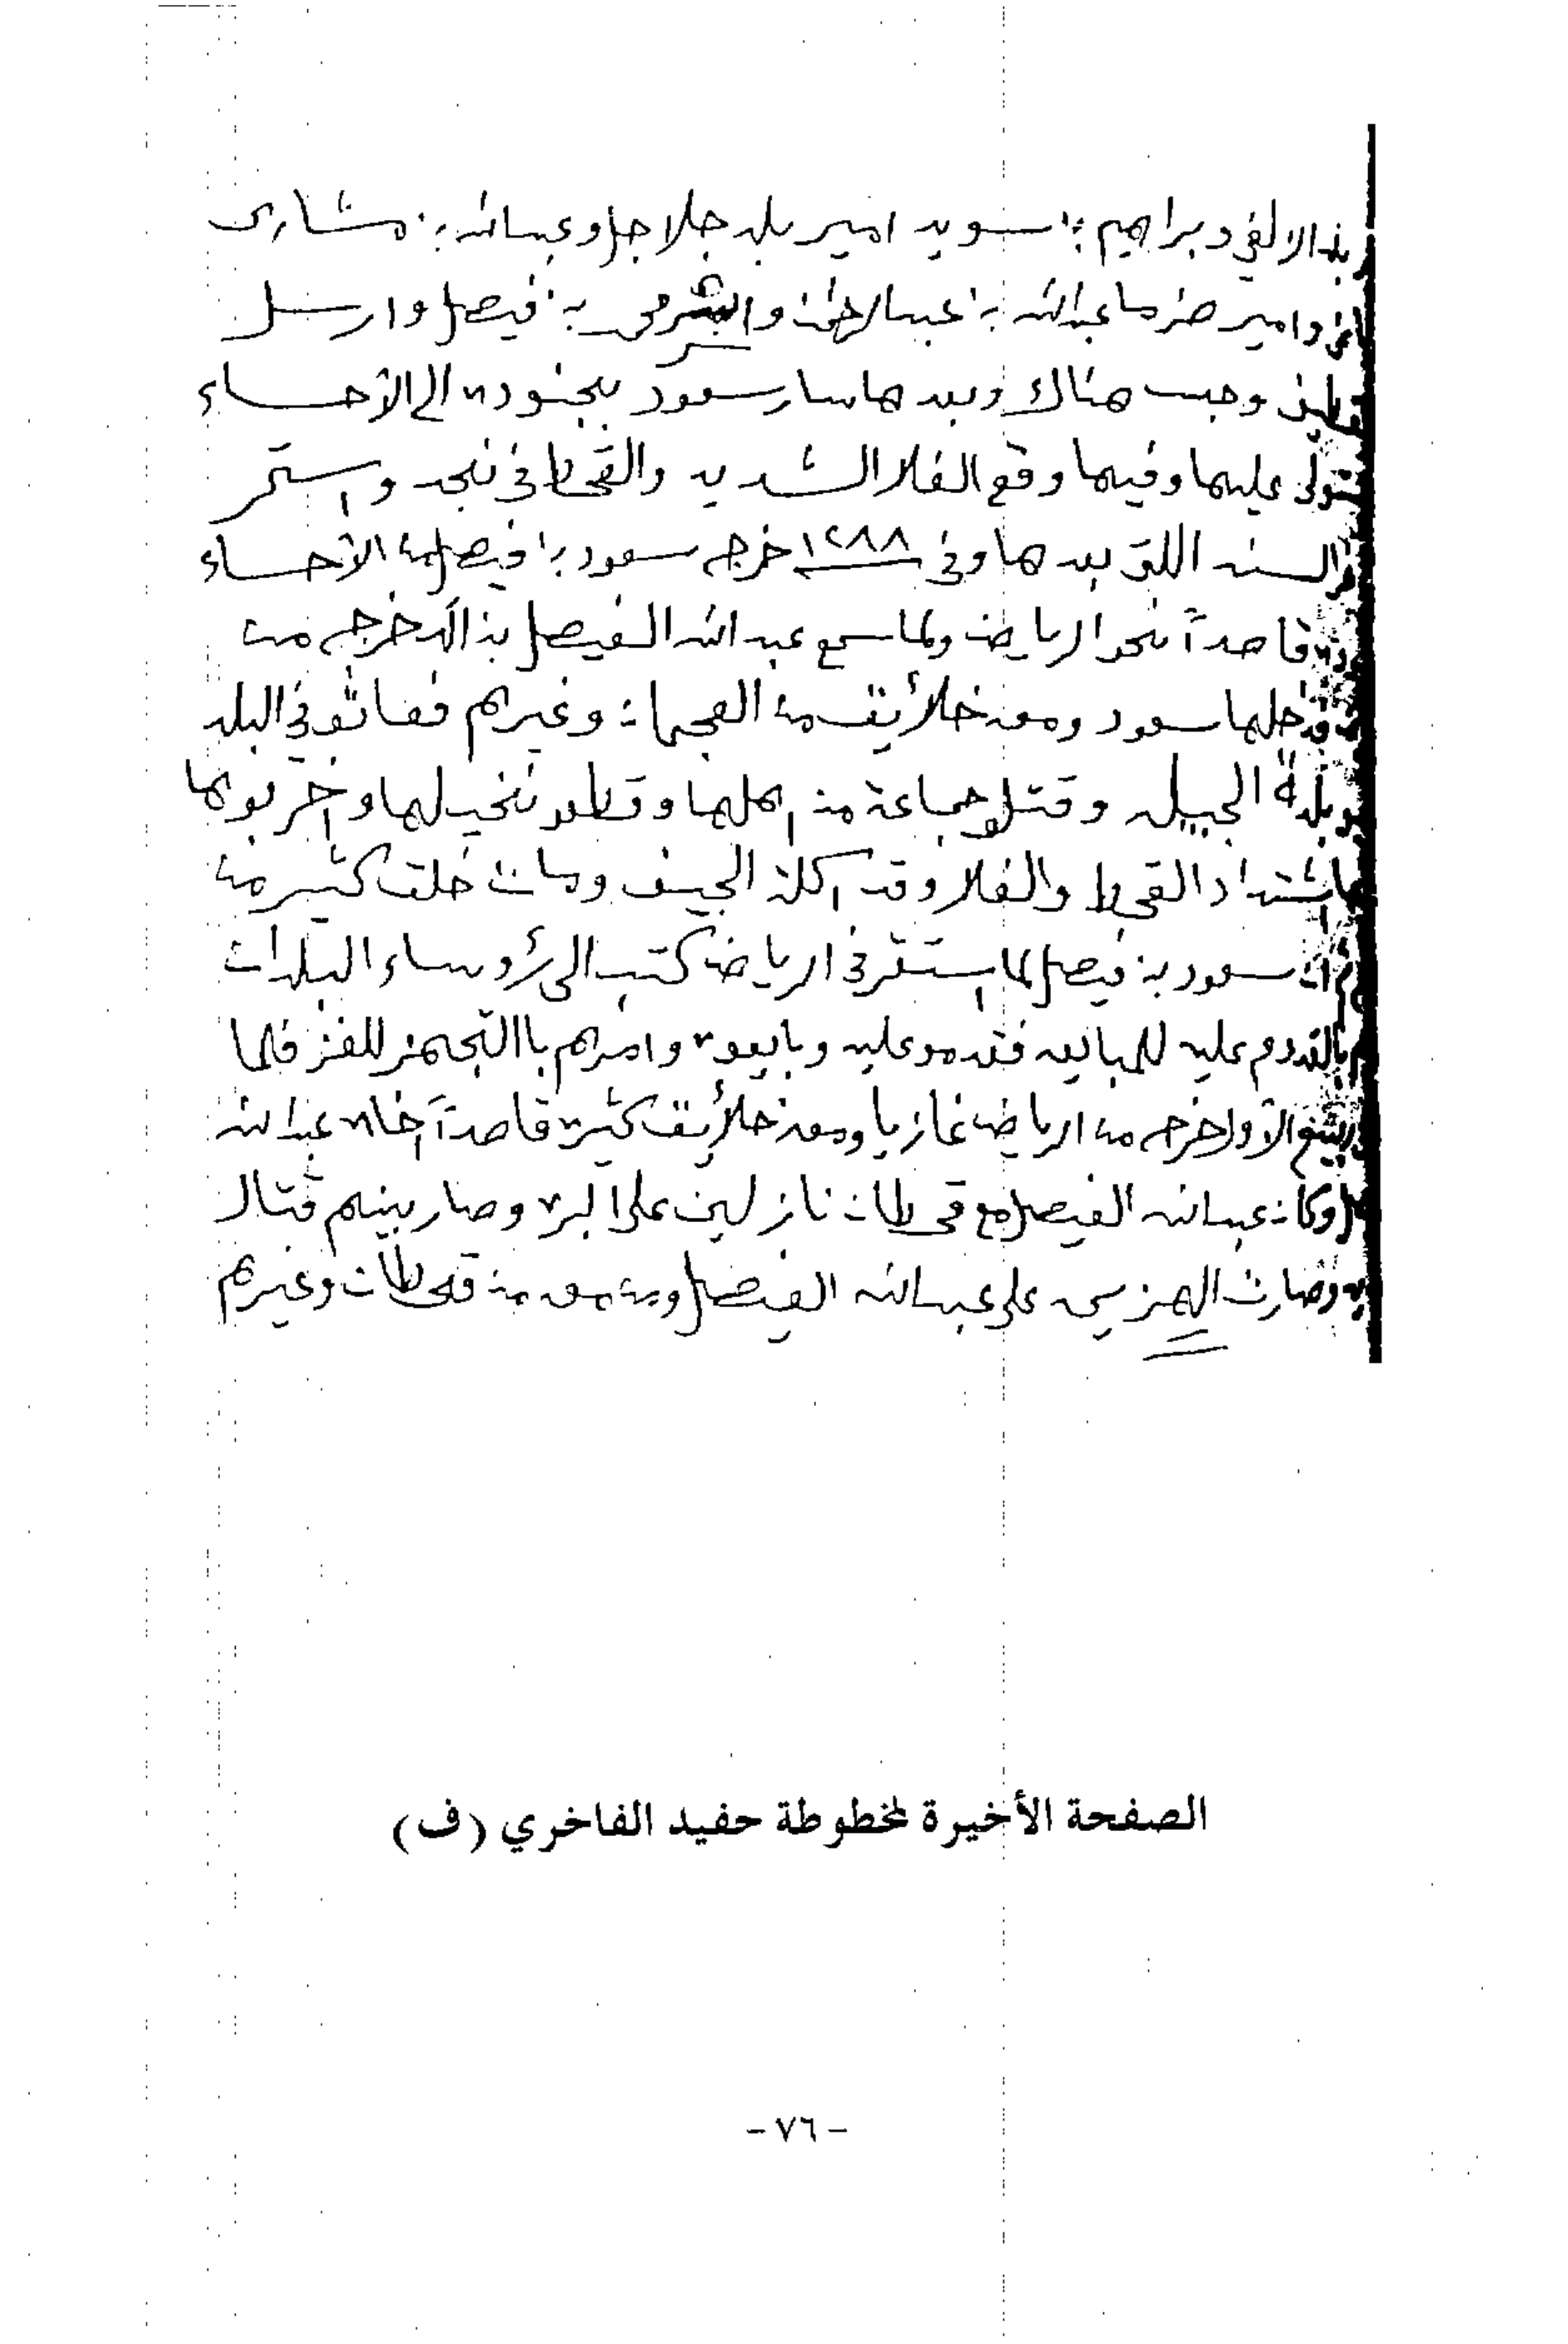 وبراهيم بن سويد امير بلد جلاجل وعبدالله بن مشارى
وامير ضرما عبدالله بن عبدالرحمن بن فيصل وارسل
وحبس هناك وبعدها سار سعود بجنوده الى الأحساء
عليها وفيها وقع الغلا الشديد والقحط في نجد واستمر
السنه اللتى بعدها وفي ١٢٨٨ خرج سعود بن فيصل من الأحساء
قاصداً نحو الرياض ولما سمع عبدالله الفيصل بذالك خرج من
ودخلها سعود ومعه خلائق من العجمان وغيرهم فعاثو في البلد
بلدة الجبيله وقتلو جماعة من اهلها وقطعو نخيلها واخربوها
اشتداد القحط والغلا وقد اكلة الجيف ومات خلق كثير من
ان سعود بن فيصل لما استقر في الرياض كتب الى رؤساء البلدان
بالقدوم عليه للمبايعه فقدمو عليه وبايعوه وامرهم باالتجهز للغز فلما
ربيع الأول خرج من الرياض غازيا ومعه خلائق كثيره قاصداً اخاه عبدالله
وكان عبدالله الفيصل مع قحطان نازلين على البره وصار بينهم قتال
وصارت الهزيمه على عبدالله الفيصل ومن معه من قحطان وغيرهم
الصفحة الأخيرة لمخطوطة حفيد الفاخري (ف)
- ٧٦ -